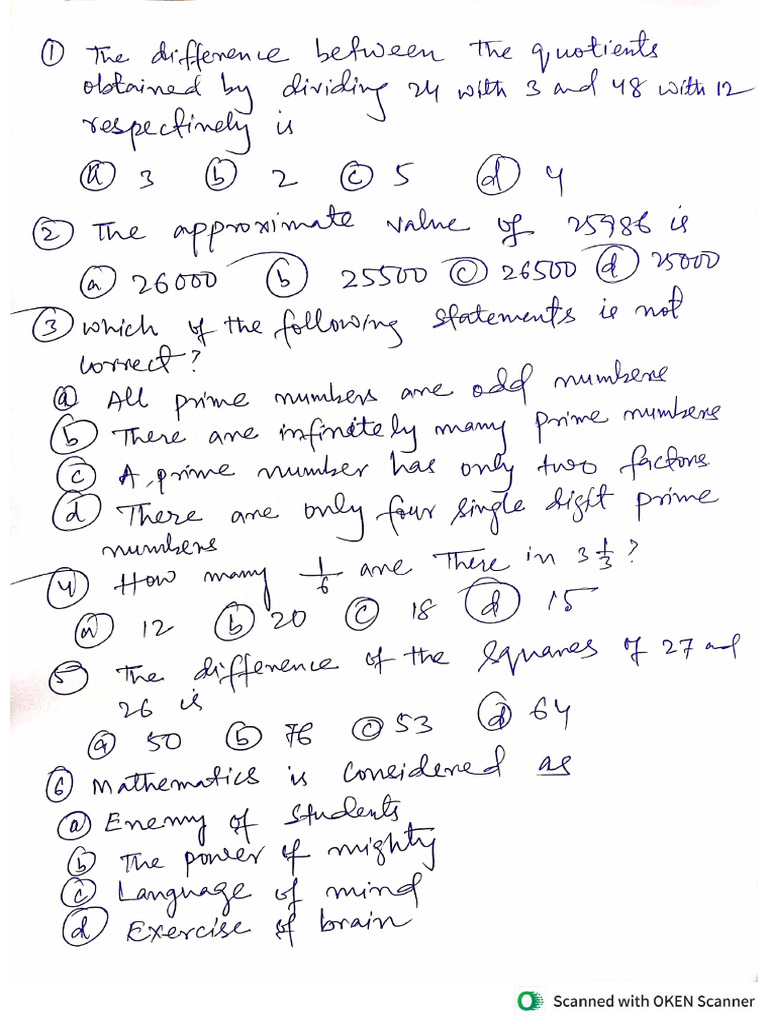 ① The difference between the quotients
obtained by dividing 24 with 3 and 48 with 12
respectively is
ⓐ 3 ⓑ 2 ⓒ 5 ⓓ 4
② The approximate value of 25986 is
ⓐ 26000 ⓑ 25500 ⓒ 26500 ⓓ 25000
③ Which of the following statements is not
correct?
ⓐ All prime numbers are odd numbers
ⓑ There are infinitely many prime numbers
ⓒ A prime number has only two factors.
ⓓ There are only four single digit prime
numbers
④ How many 1/6 are there in 3 1/3?
ⓐ 12 ⓑ 20 ⓒ 18 ⓓ 15
⑤ The difference of the squares of 27 and
26 is
ⓐ 50 ⓑ 76 ⓒ 53 ⓓ 64
⑥ Mathematics is considered as
ⓐ Enemy of students
ⓑ The power of mighty
ⓒ Language of mind
ⓓ Exercise of brain
Scanned with OKEN Scanner